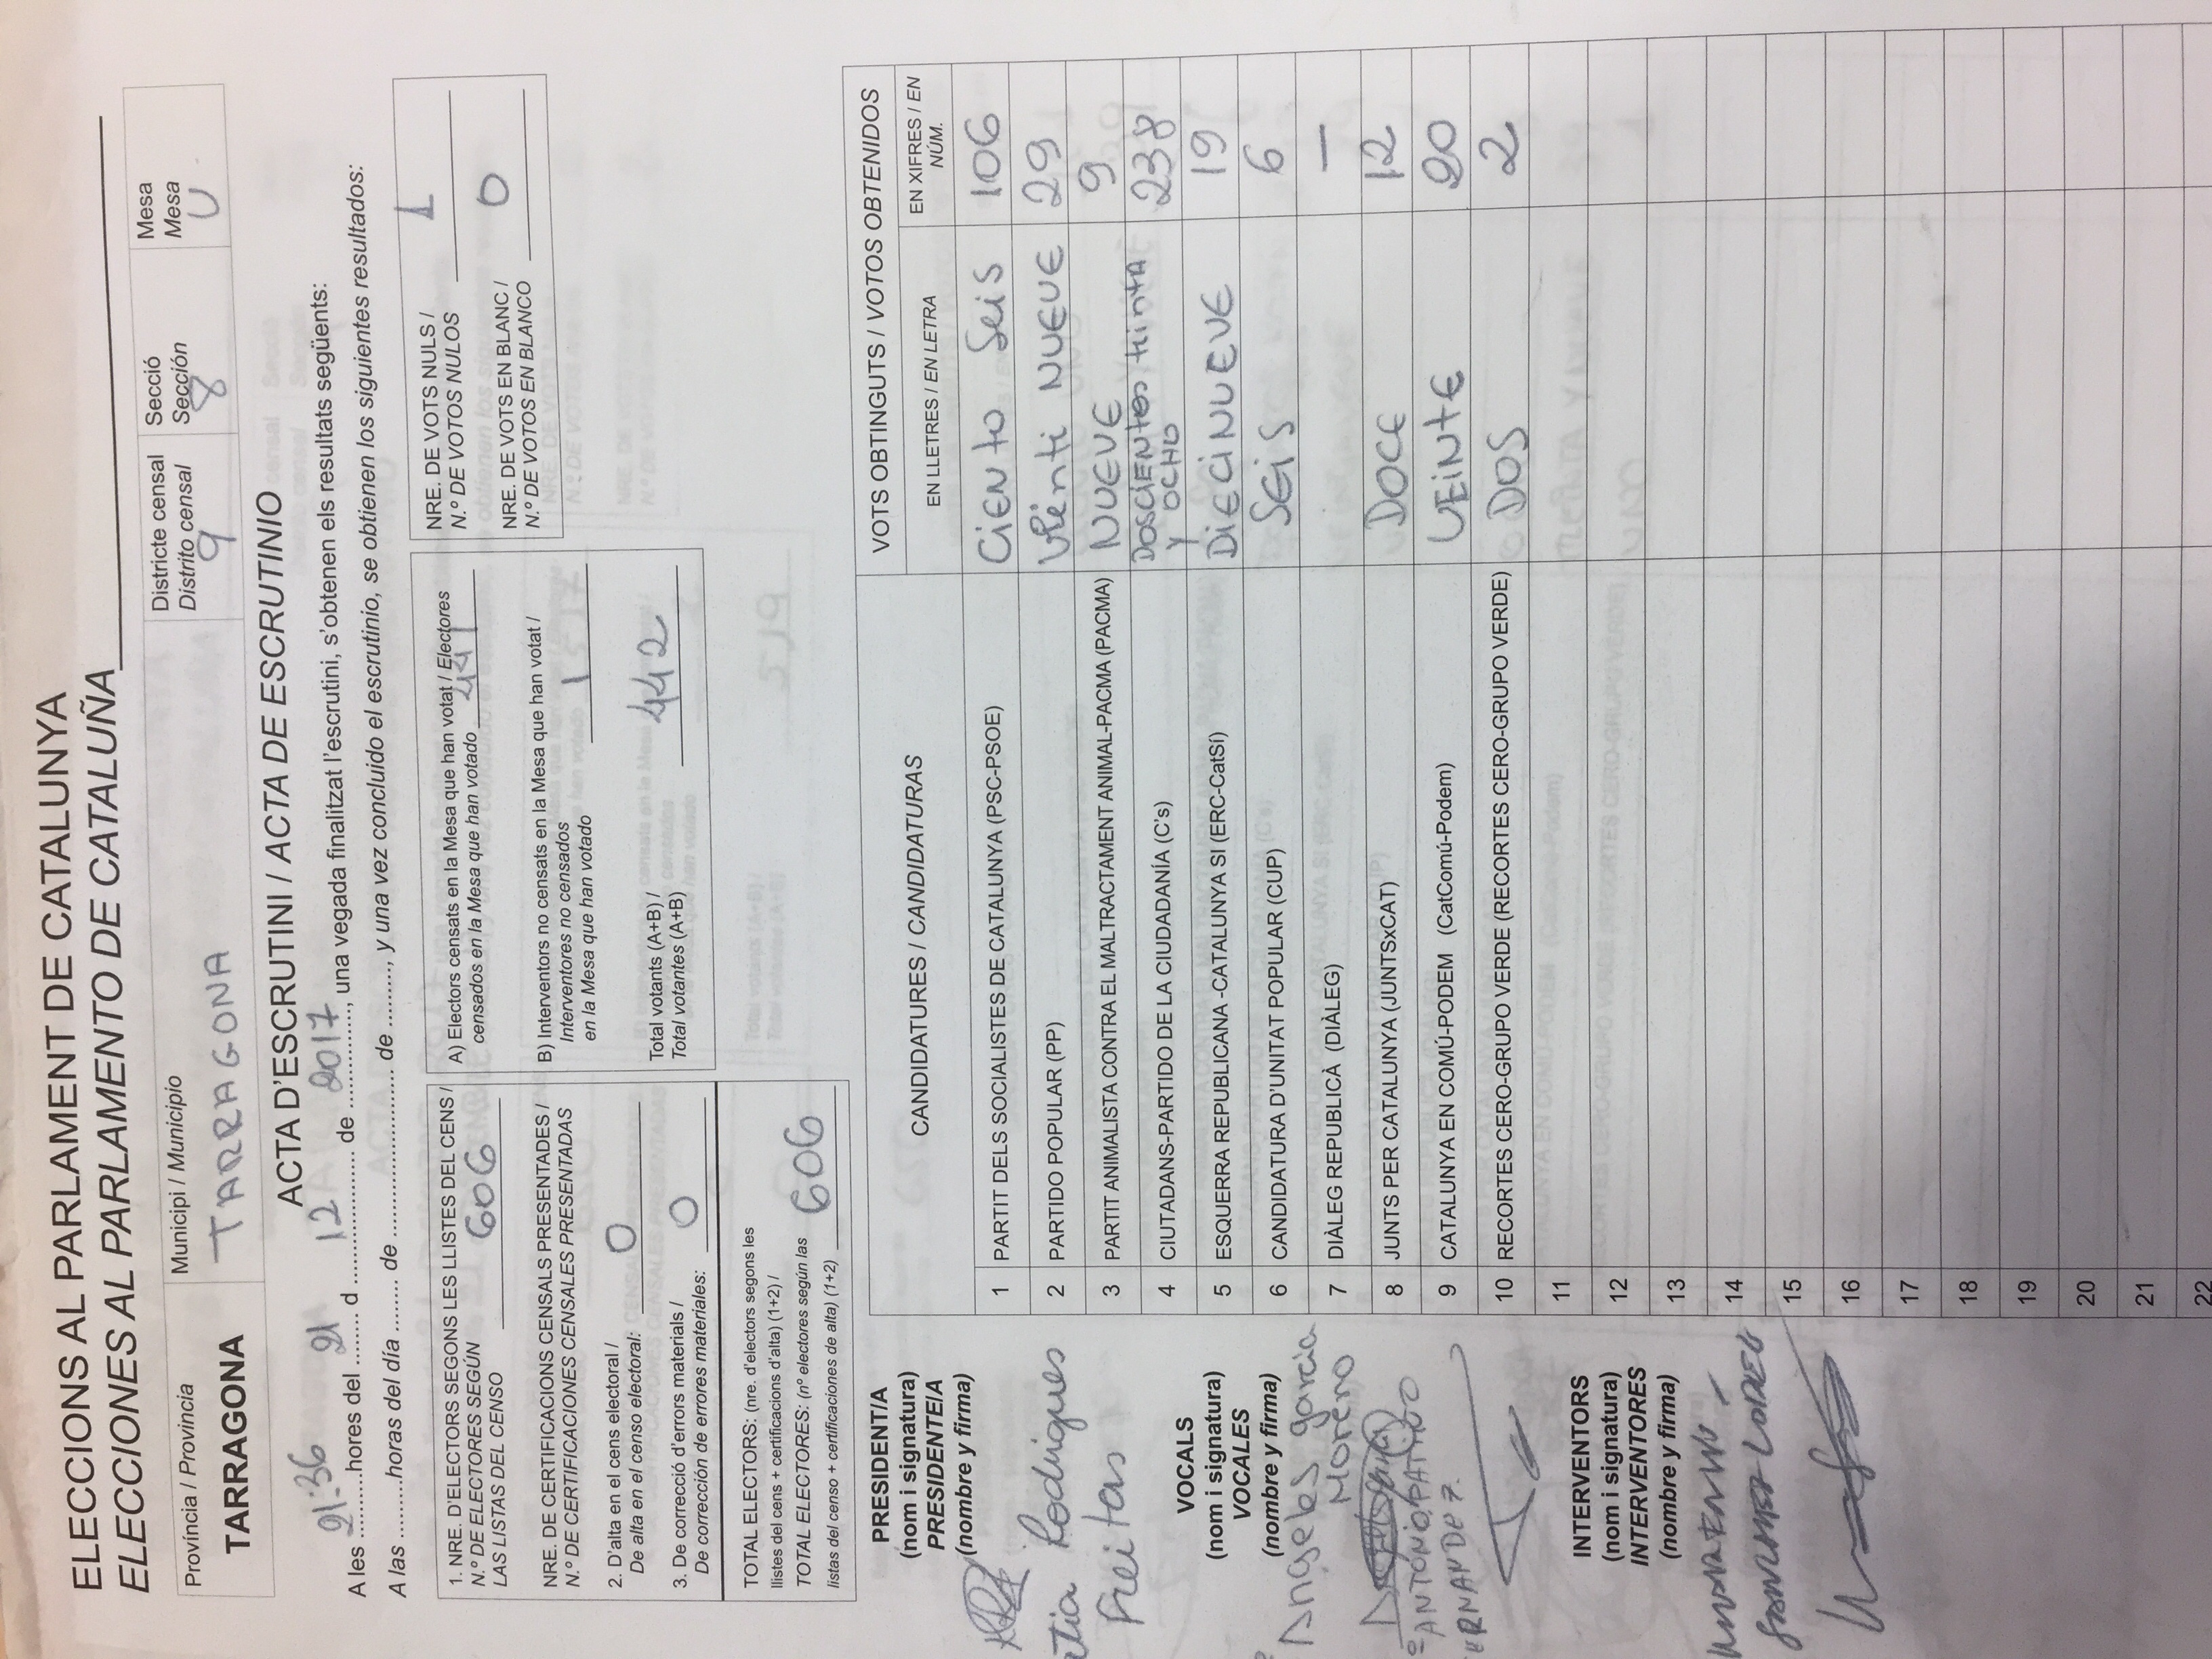 ELECCIONS AL PARLAMENT DE CATALUNYA
ELECCIONES AL PARLAMENTO DE CATALUÑA
Província / Provincia
TARRAGONA
Municipi / Municipio
TARRAGONA
Districte censal
Distrito censal
9
Secció
Sección
8
Mesa
Mesa
U
ACTA D'ESCRUTINI / ACTA DE ESCRUTINIO
A les 21:36 hores del 21 d 12 de 2017, una vegada finalitzat l'escrutini, s'obtenen els resultats següents:
A las .........horas del día ........ de ........................ de ........., y una vez concluido el escrutinio, se obtienen los siguientes resultados:
1. NRE. D'ELECTORS SEGONS LES LLISTES DEL CENS /
N.º DE ELECTORES SEGÚN
LAS LISTAS DEL CENSO 606
NRE. DE CERTIFICACIONS CENSALS PRESENTADES /
N.º DE CERTIFICACIONES CENSALES PRESENTADAS
2. D'alta en el cens electoral /
De alta en el censo electoral: 0
3. De correcció d'errors materials /
De corrección de errores materiales: 0
TOTAL ELECTORS: (nre. d'electors segons les
llistes del cens + certificacions d'alta) (1+2) /
TOTAL ELECTORES: (nº electores según las
listas del censo + certificaciones de alta) (1+2) 606
A) Electors censats en la Mesa que han votat / Electores
censados en la Mesa que han votado 441
B) Interventors no censats en la Mesa que han votat /
Interventores no censados
en la Mesa que han votado 1
Total votants (A+B) /
Total votantes (A+B) 442
NRE. DE VOTS NULS /
N.º DE VOTOS NULOS 1
NRE. DE VOTS EN BLANC /
N.º DE VOTOS EN BLANCO 0
PRESIDENT/A
(nom i signatura)
PRESIDENTE/A
(nombre y firma)
Rodrigues
Freitas
VOCALS
(nom i signatura)
VOCALES
(nombre y firma)
Angeles garcia
Moreno
ANTONIO PATIÑO
INTERVENTORS
(nom i signatura)
INTERVENTORES
(nombre y firma)
CANDIDATURES / CANDIDATURAS
VOTS OBTINGUTS / VOTOS OBTENIDOS
EN LLETRES / EN LETRA
EN XIFRES / EN
NÚM.
1 PARTIT DELS SOCIALISTES DE CATALUNYA (PSC-PSOE) CIENTO SEIS 106
2 PARTIDO POPULAR (PP) Viénti NUEVE 29
3 PARTIT ANIMALISTA CONTRA EL MALTRACTAMENT ANIMAL-PACMA (PACMA) NUEVE 9
4 CIUTADANS-PARTIDO DE LA CIUDADANÍA (C's) DOSCIENTOS trintA
y OCHO 238
5 ESQUERRA REPUBLICANA -CATALUNYA SI (ERC-CatSí) DIECINUEVE 19
6 CANDIDATURA D'UNITAT POPULAR (CUP) SEIS 6
7 DIÀLEG REPUBLICÀ (DIÀLEG) —
8 JUNTS PER CATALUNYA (JUNTSxCAT) DOCE 12
9 CATALUNYA EN COMÚ-PODEM (CatComú-Podem) VEINTE 20
10 RECORTES CERO-GRUPO VERDE (RECORTES CERO-GRUPO VERDE) DOS 2
11
12
13
14
15
16
17
18
19
20
21
22